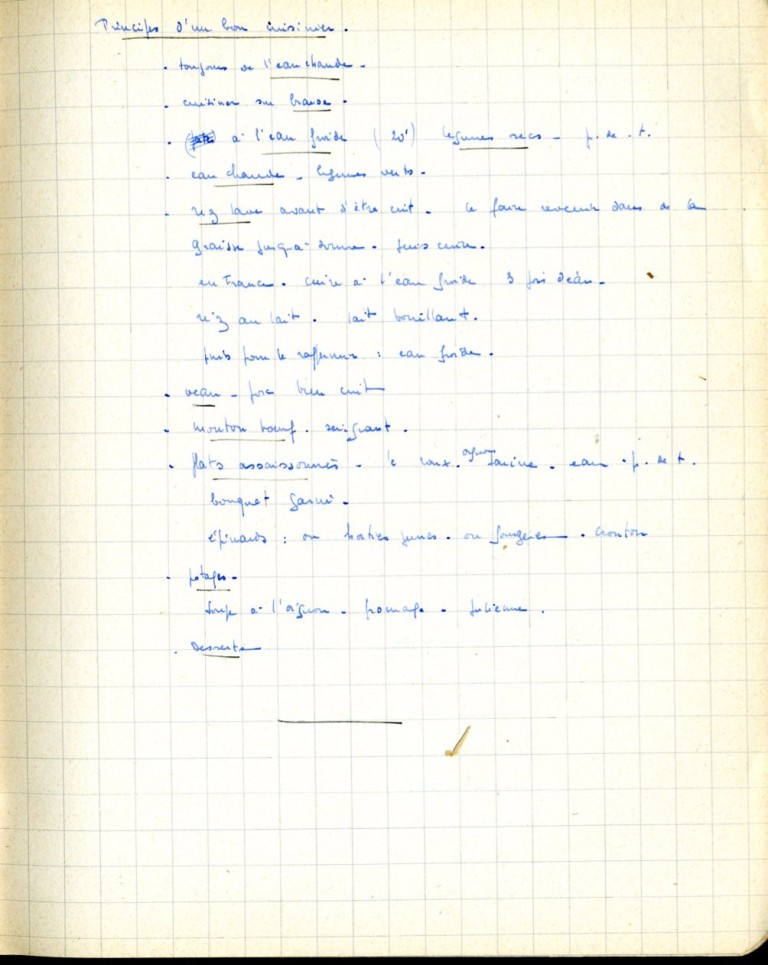 Principes d'un bon cuisinier.
. toujours de l'eau chaude.
. cuisiner sur braise.
. à l'eau froide (20') légumes secs - p. de. t.
eau chaude - légumes verts.
. riz lavé avant d'être cuit. le faire revenir dans de la
graisse jusqu'à dorure. puis cuire.
en France. cuire à l'eau froide 3 fois d'eau.
riz au lait. lait bouillant.
puis pour le raffermir : eau froide.
. veau - porc bien cuit
. mouton bœuf. saignant.
. plats assaisonnés - le roux. oignons farine. eau. p. de t.
bouquet garni.
épinards : ou orties jeunes. ou fougères. croûton
. potages.
soupe à l'oignon. fromage. julienne.
. Desserts